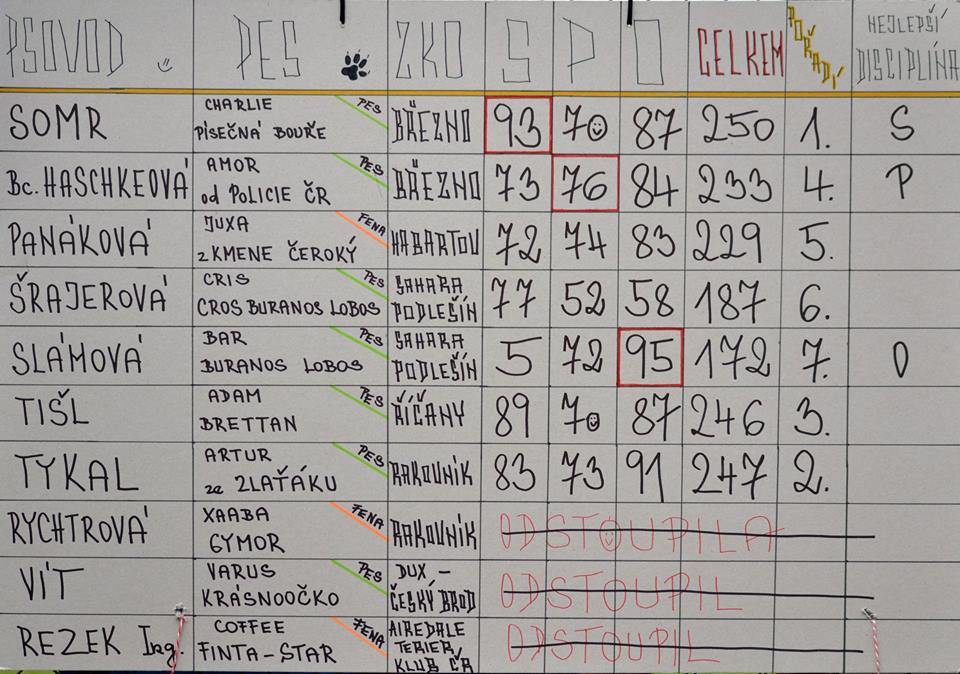 PSOVOD PES ZKO S P O CELKEM POŘADÍ NEJLEPŠÍ DISCIPLÍNA
SOMR CHARLIE PÍSEČNÁ BOUŘE PES BŘEZNO 93 70 87 250 1. S
Bc. HASCHKEOVÁ AMOR od POLICIE ČR PES BŘEZNO 73 76 84 233 4. P
PANÁKOVÁ JUXA z KMENE ČEROKÝ FENA HABARTOV 72 74 83 229 5.
ŠRAJEROVÁ CRIS CROS BURANOS LOBOS PES SAHARA PODLEŠÍN 77 52 58 187 6.
SLÁMOVÁ BAR BURANOS LOBOS PES SAHARA PODLEŠÍN 5 72 95 172 7. O
TIŠL ADAM BRETTAN PES ŘÍČANY 89 70 87 246 3.
TYKAL ARTUR ze ZLAŤÁKU PES RAKOVNÍK 83 73 91 247 2.
RYCHTROVÁ XAABA GYMOR FENA RAKOVNÍK ODSTOUPILA
VÍT VARUS KRÁSNOOČKO PES DUX - ČESKÝ BROD ODSTOUPIL
REZEK Ing. COFFEE FINTA-STAR FENA AIREDALE TERIER KLUB ČR ODSTOUPIL